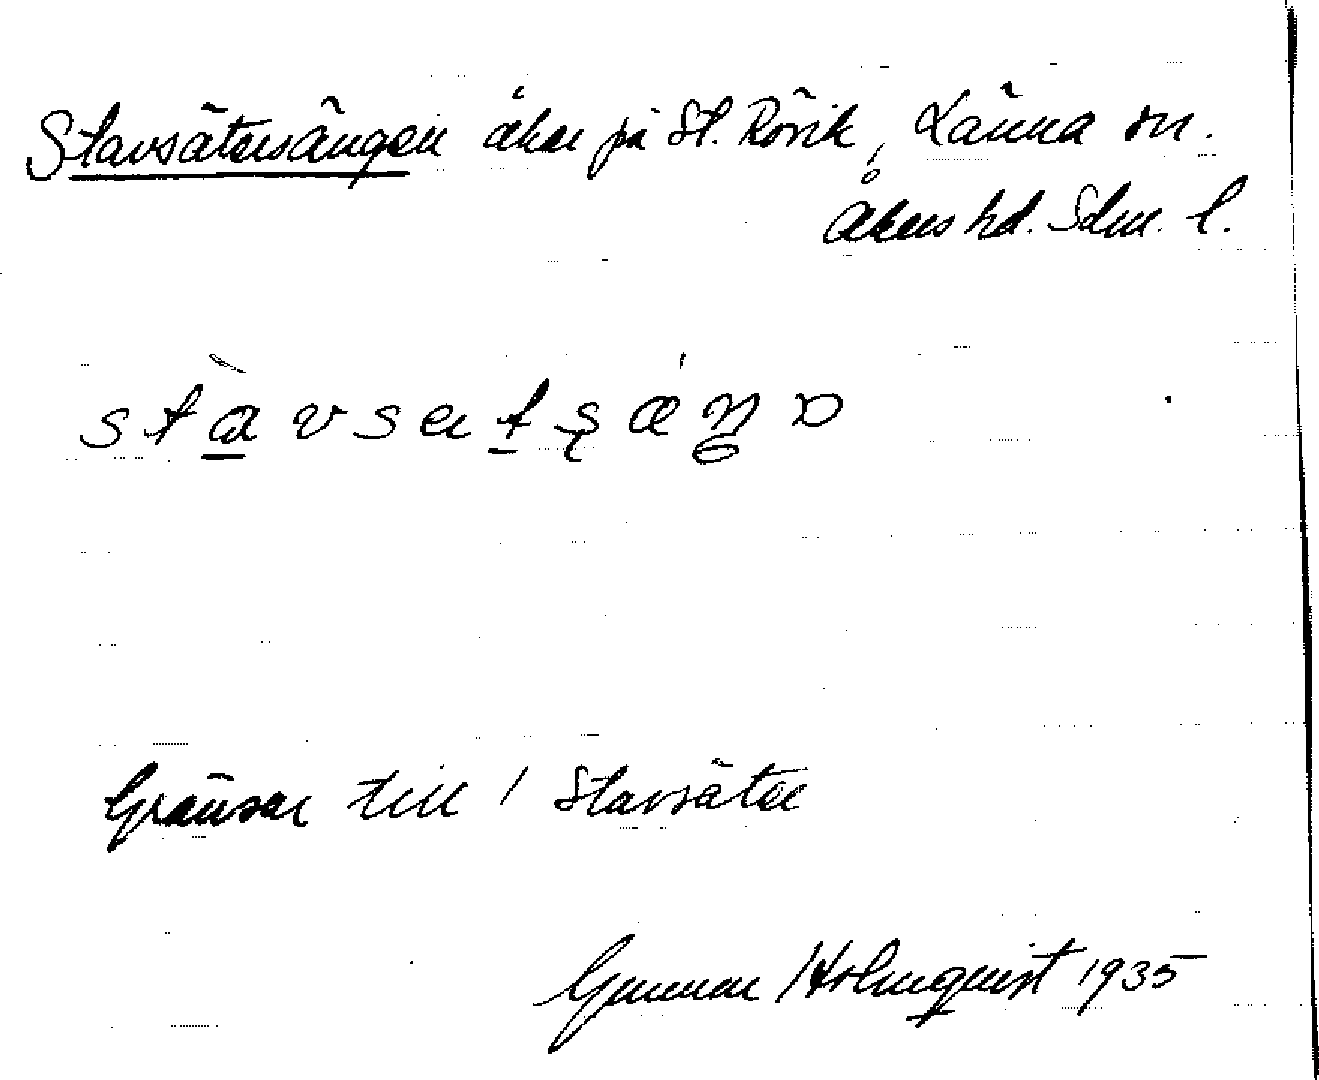 Stavsätersängen åker på St. Rörik, Länna sn.
Åkers hd. Sdm. l.
stàvsætsǽŋɒ
Gränsar till Stavsäter
Gunnar Holmquist 1935